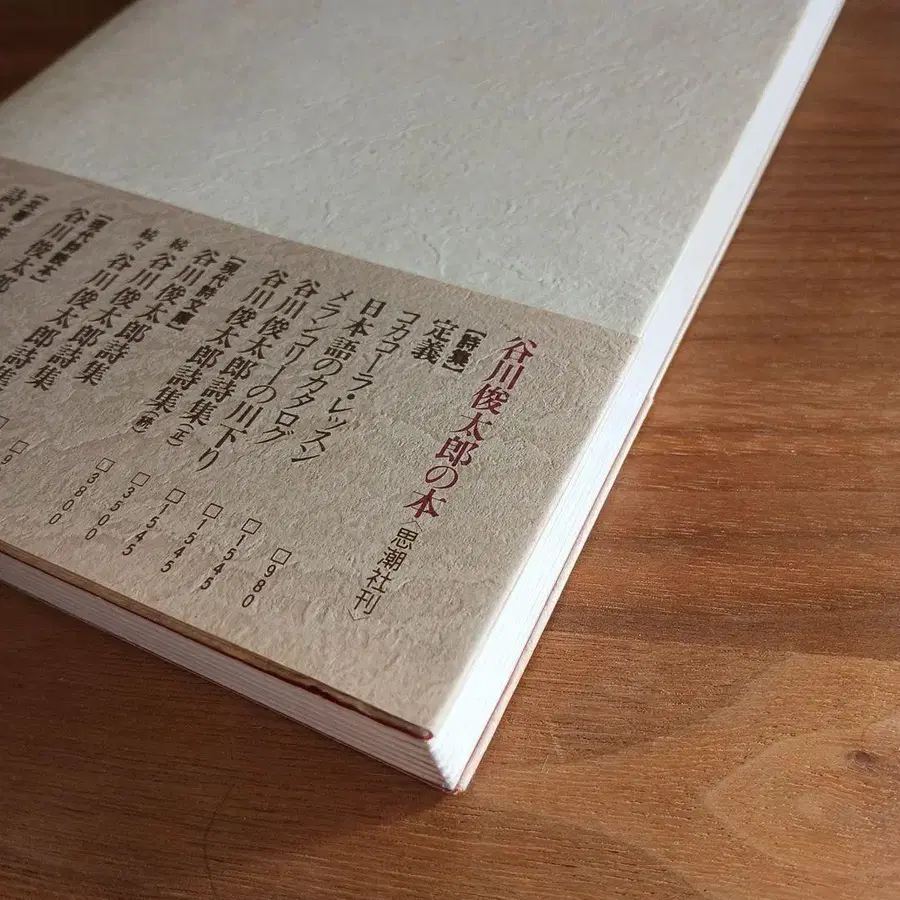 谷川俊太郎の本〈思潮社刊〉
【詩集】
定義
コカコーラ・レッスン
日本語のカタログ
メランコリーの川下り
谷川俊太郎詩集
【現代詩文庫】
谷川俊太郎詩集(正)
続 谷川俊太郎詩集
続々 谷川俊太郎詩集
谷川俊太郎詩集
□980
□1545
□1545
□3500
□3800